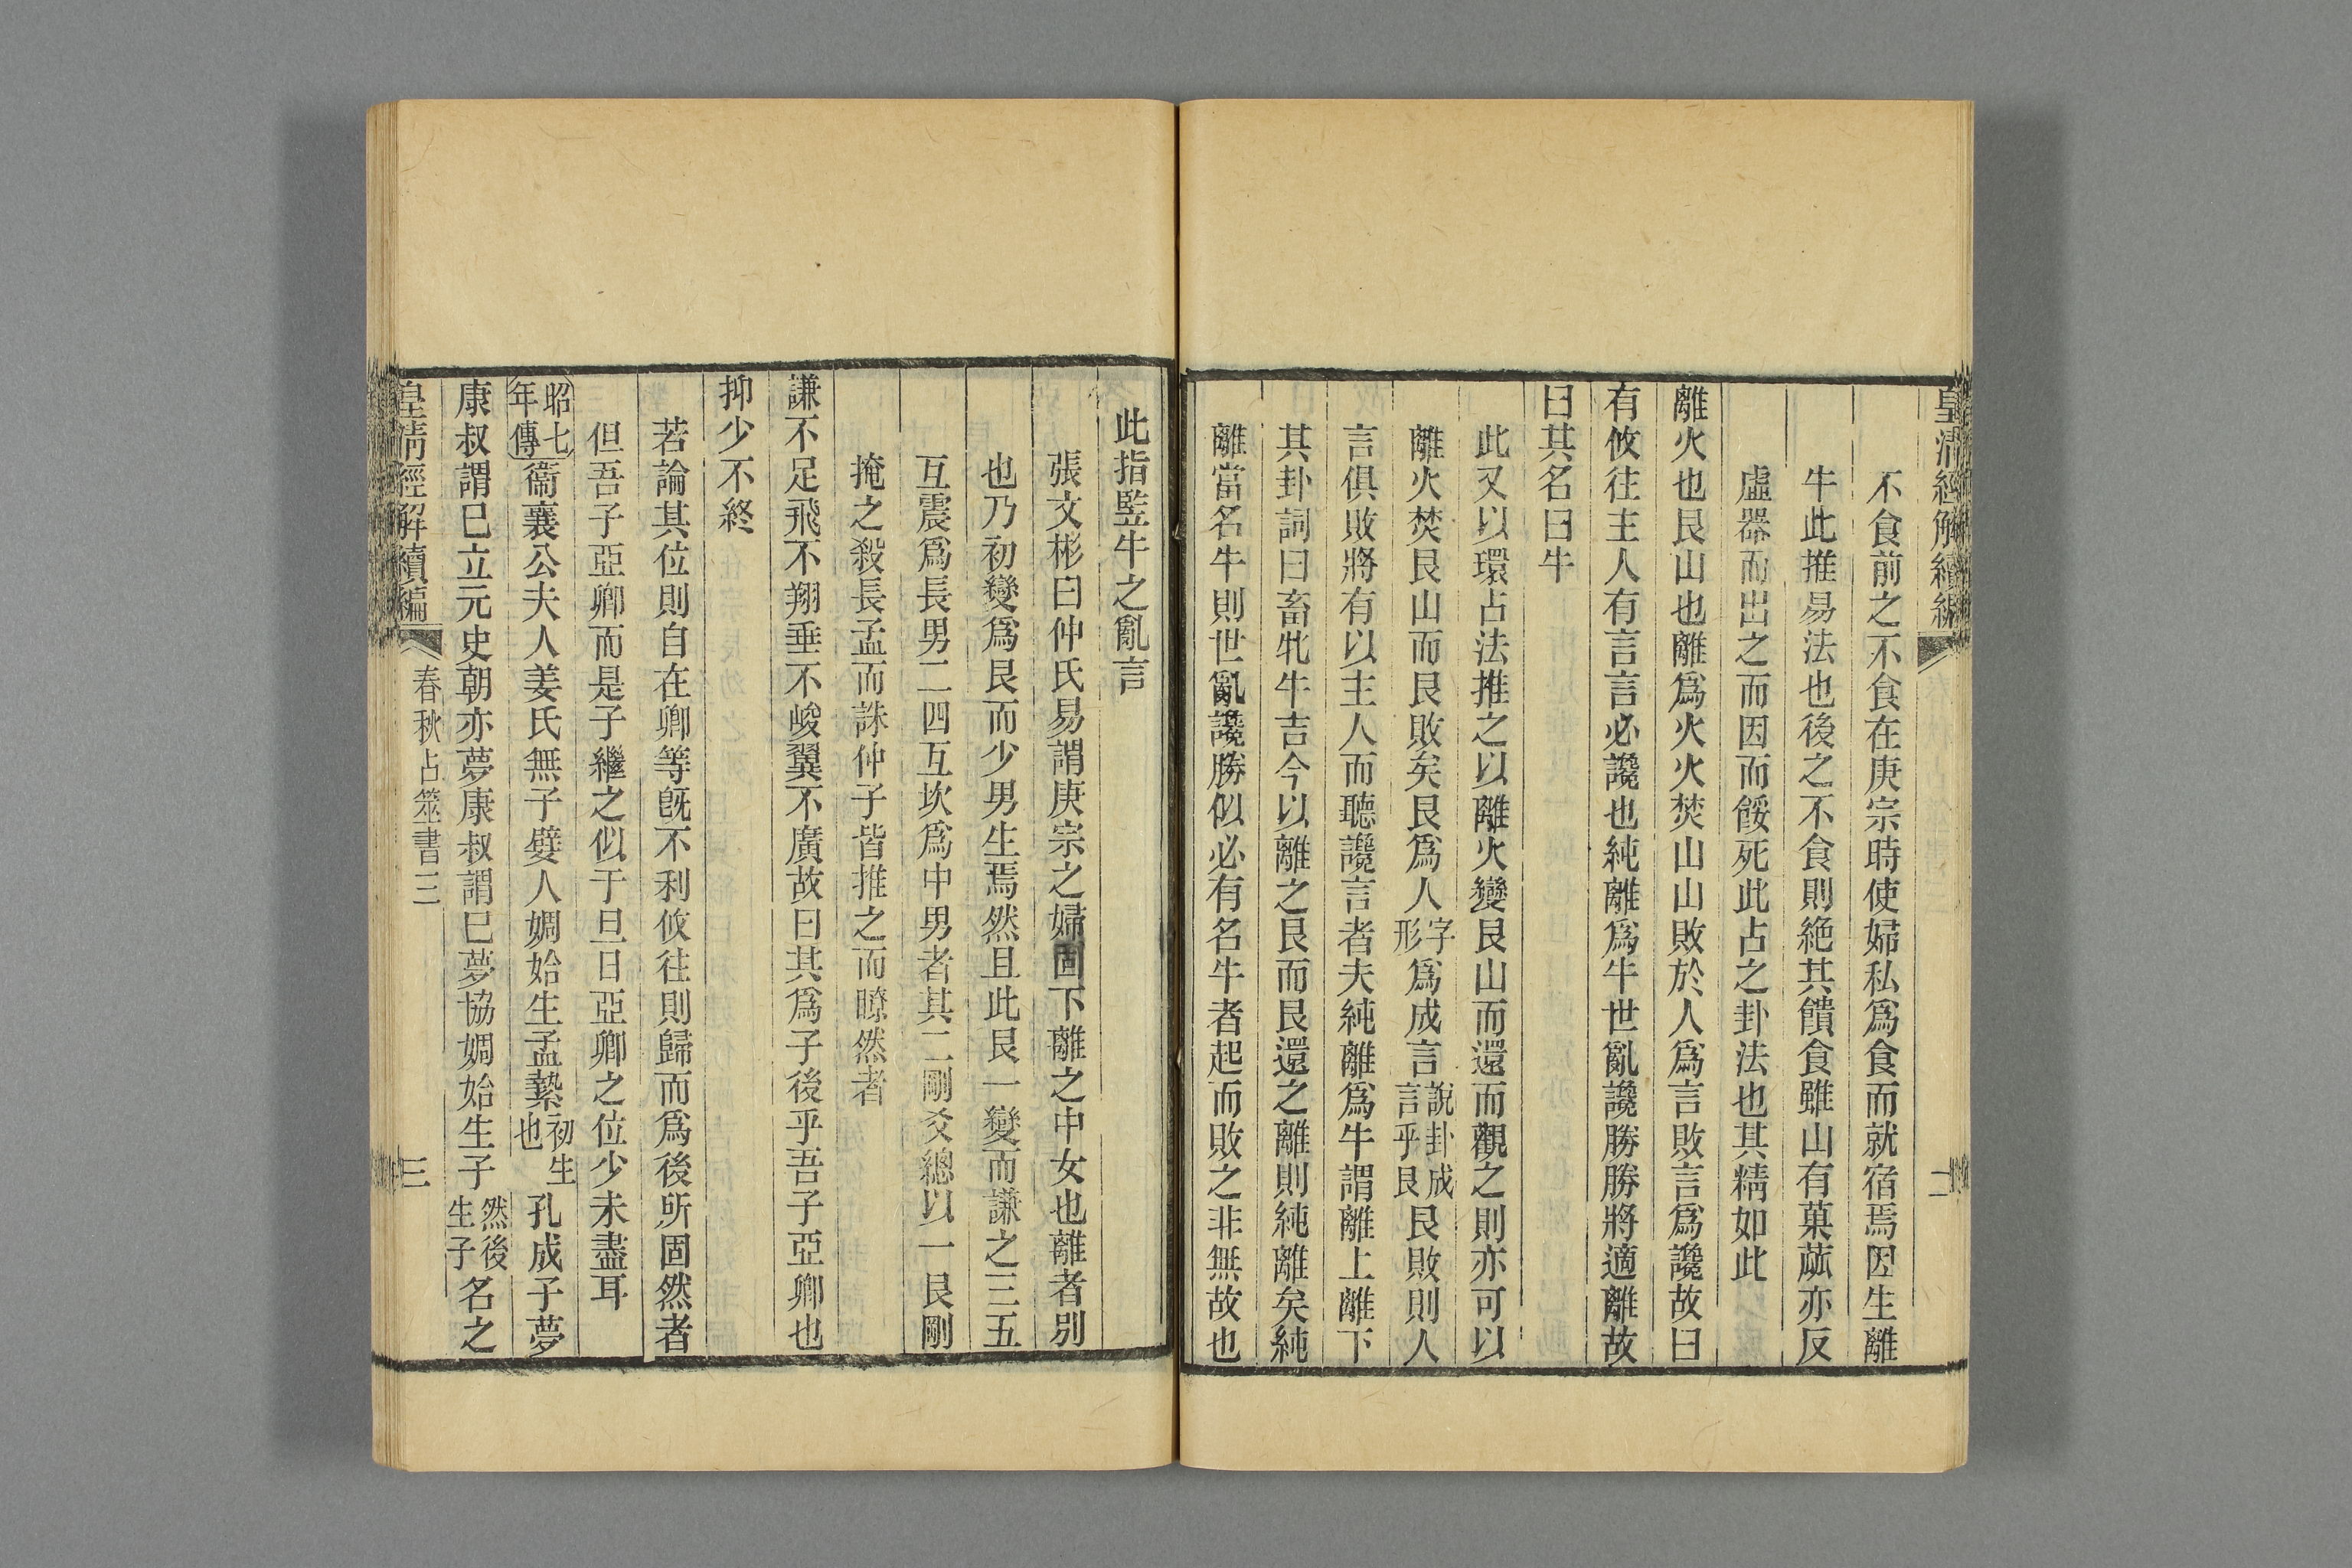 皇清經解續編
二
不食前之不食在庚宗時使婦私爲食而就宿焉因生離
牛此推易法也後之不食則絶其饋食雖山有菓蓏亦反
虛器而出之而因而餒死此占之卦法也其精如此
離火也艮山也離爲火火焚山山敗於人爲言敗言爲讒故曰
有攸往主人有言言必讒也純離爲牛世亂讒勝勝將適離故
曰其名曰牛
此又以環占法推之以離火變艮山而還而觀之則亦可以
離火焚艮山而艮敗矣艮爲人字形爲成言說卦成言乎艮艮敗則人
言俱敗將有以主人而聽讒言者夫純離爲牛謂離上離下
其卦詞曰畜牝牛吉今以離之艮而艮還之離則純離矣純
離當名牛則世亂讒勝似必有名牛者起而敗之非無故也
此指監牛之亂言
張文彬曰仲氏易謂庚宗之婦固下離之中女也離者別
也乃初變爲艮而少男生焉然且此艮一變而謙之三五
互震爲長男二四互坎爲中男者其二剛爻總以一艮剛
掩之殺長孟而誅仲子皆推之而瞭然者
謙不足飛不翔垂不峻翼不廣故曰其爲子後乎吾子亞卿也
抑少不終
若論其位則自在卿等旣不利攸往則歸而爲後所固然者
但吾子亞卿而是子繼之似于旦日亞卿之位少未盡耳
昭七年傳衞襄公夫人姜氏無子嬖人婤姶生孟縶初生也孔成子夢
康叔謂巳立元史朝亦夢康叔謂巳夢協婤姶生子然後生子名之
皇清經解續編
春秋占筮書三
三